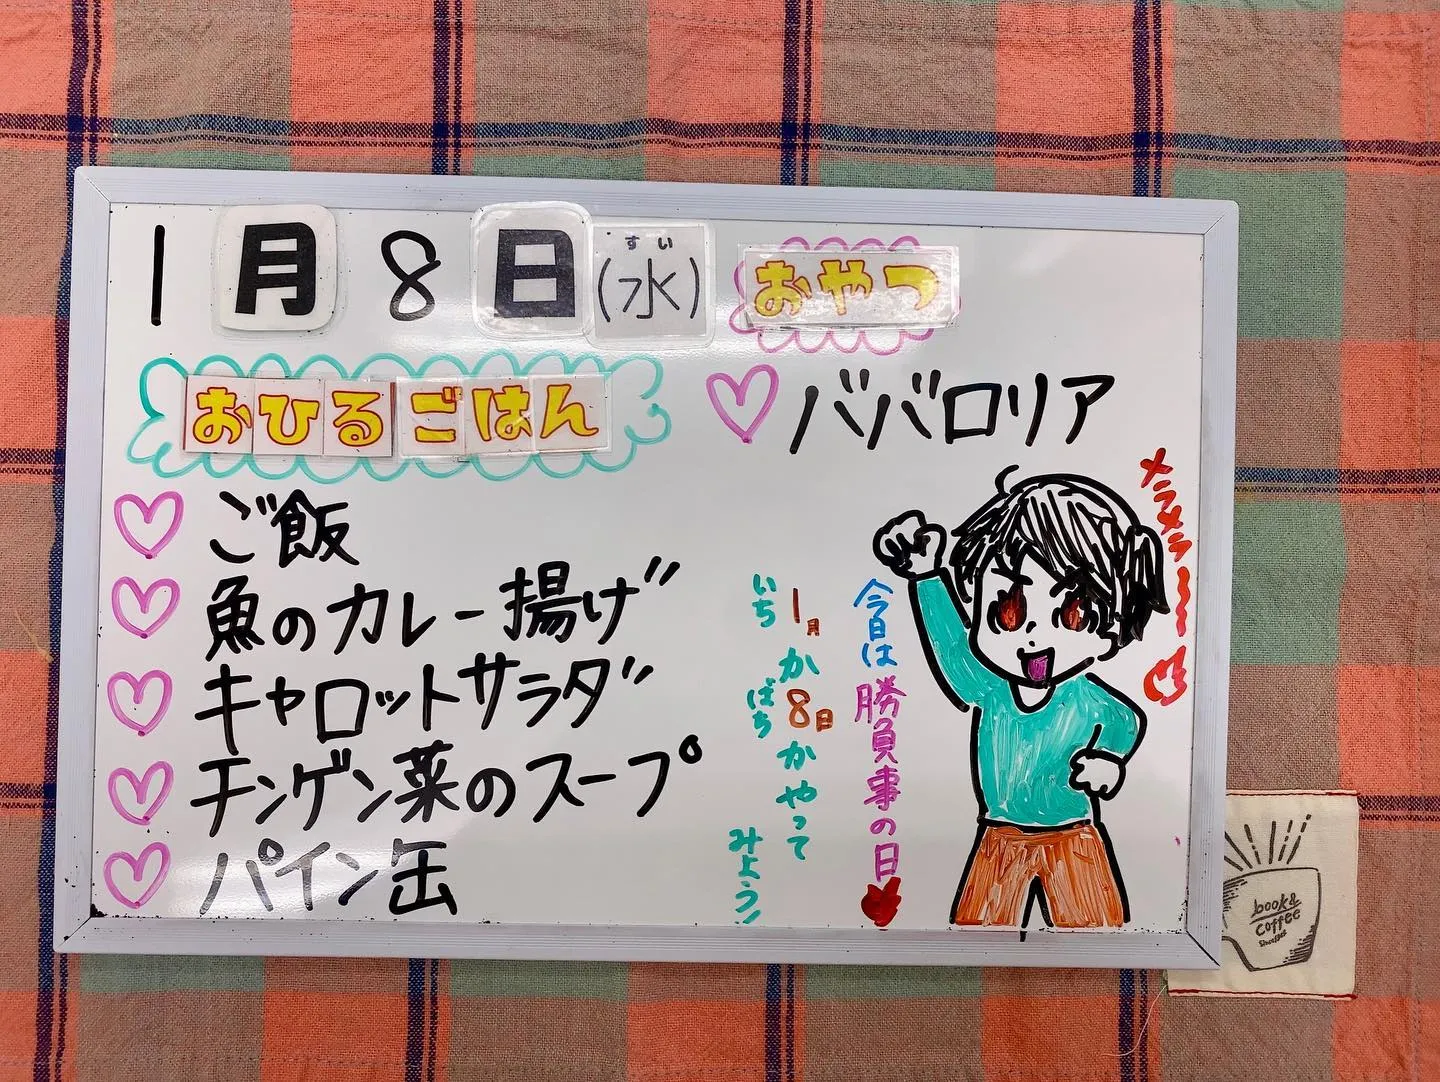 1月8日(水)
すい
おひるごはん
ご飯
魚のカレー揚げ
キャロットサラダ
チンゲン菜のスープ
パイン缶
おやつ
ババロリア
メラメラ〜〜
今日は勝負事の日
1月か8日かやって
いち ばち
みよう!!
book&
coffee